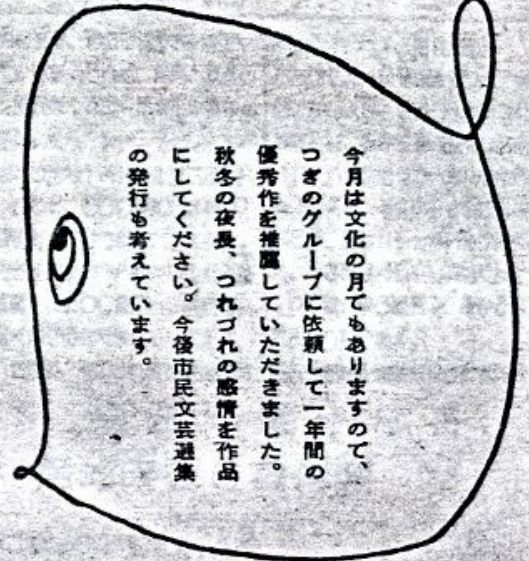 今月は文化の月でもありますので、
つぎのグループに依頼して一年間の
優秀作を推薦していただきました。
秋冬の夜長、つれづれの感情を作品
にしてください。今後市民文芸選集
の発行も考えています。